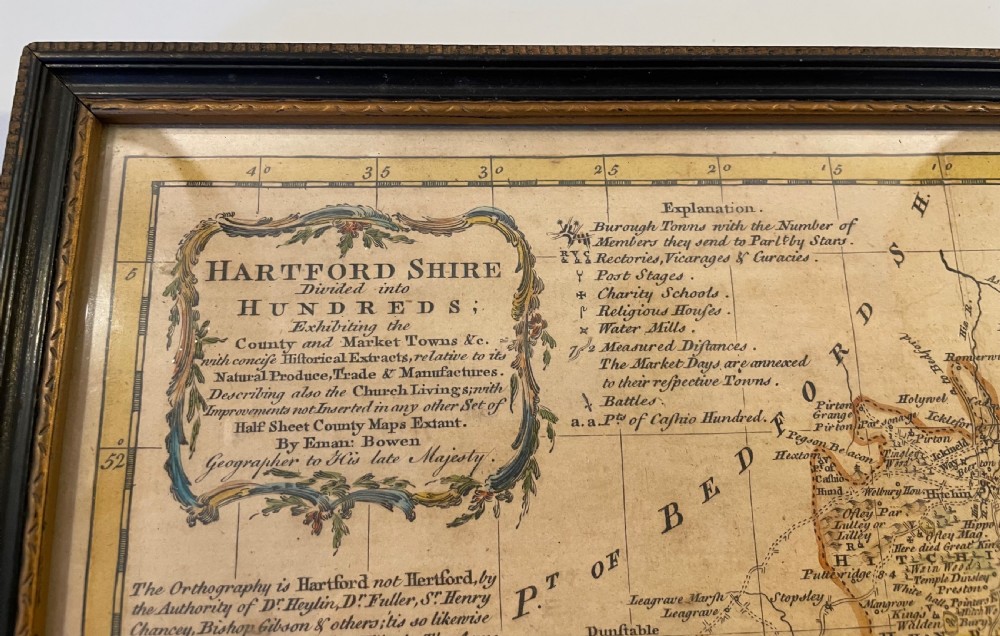 40 35 30 25 20 15 10
HARTFORD SHIRE
Divided into
HUNDREDS;
Exhibiting the
County and Market Towns &c.
with concise Historical Extracts, relative to its
Natural Produce, Trade & Manufactures.
Describing also the Church Livings; with
Improvements not Inserted in any other Set of
Half Sheet County Maps Extant.
By Eman: Bowen
Geographer to His late Majesty.
5
52
Explanation.
Burough Towns with the Number of
Members they send to Parlt by Stars.
Rectories, Vicarages & Curacies.
Post Stages.
Charity Schools.
Religious Houses.
Water Mills.
Measured Distances.
The Market Days, are annexed
to their respective Towns.
Battles.
a.a. Pts of Cashio Hundred.
PT OF BEDFORDSH.
The Orthography is Hartford not Hertford, by
the Authority of Dr Heylin, Dr Fuller, Sr Henry
Chancey, Bishop Gibson & others; tis so likewise
Holywel
Pirton
Grange
Pirton
Ickleford
Parsonage
Pirton
Pegson Beacon
Hexton
Ickineld
Way
Pt of
Cashio
Hund
Welbury Hou
Hitchin
Ofley Par
Lulley or
Lilley
Ofley Mag
Here died Great King
HITCHI
Wain Wood
Temple Dinsley
Putteridge
Preston
White hall
Mangrove
Kings
Walden
Bury
Leagrave Marsh
Leagrave
Stopsley
Dunstable